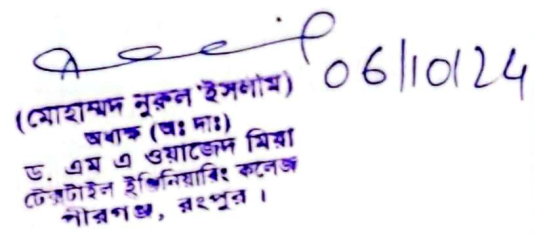 06/10/24
(মোহাম্মদ নুরুল ইসলাম)
অধ্যক্ষ (অঃ দাঃ)
ড. এম এ ওয়াজেদ মিয়া
টেক্সটাইল ইঞ্জিনিয়ারিং কলেজ
পীরগঞ্জ, রংপুর ।